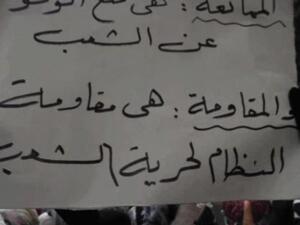 الممانعة : هي منع
عن الشعب
والمقاومة : هي مقاومة
النظام لحرية الشعب